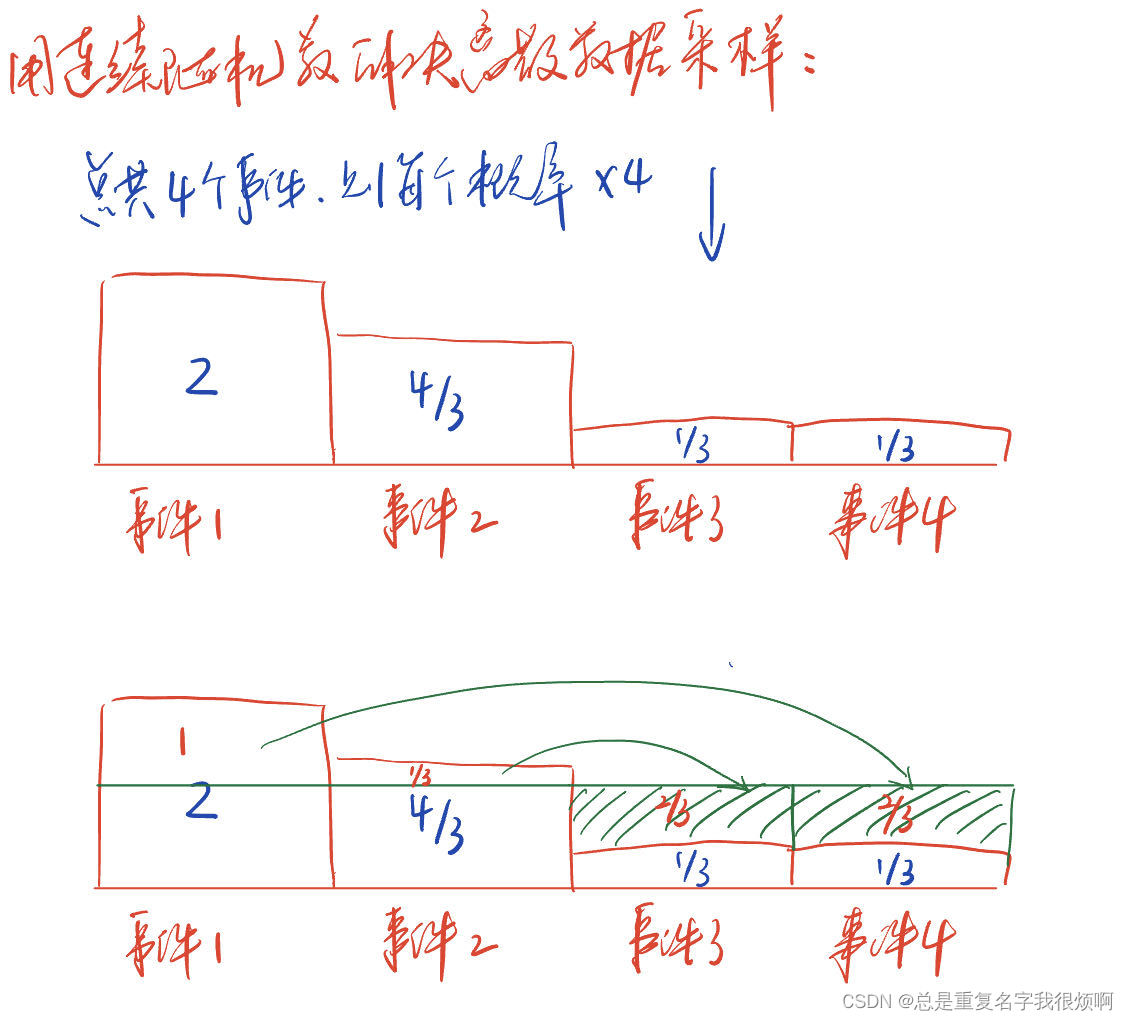 用连续随机数解决离散数据采样：
总共4个事件.则每个概率 ×4
2
4/3
1/3 1/3
事件1 事件2 事件3 事件4
1
1/3
2 4/3 2/3 2/3
1/3 1/3
事件1 事件2 事件3 事件4
CSDN @总是重复名字我很烦啊